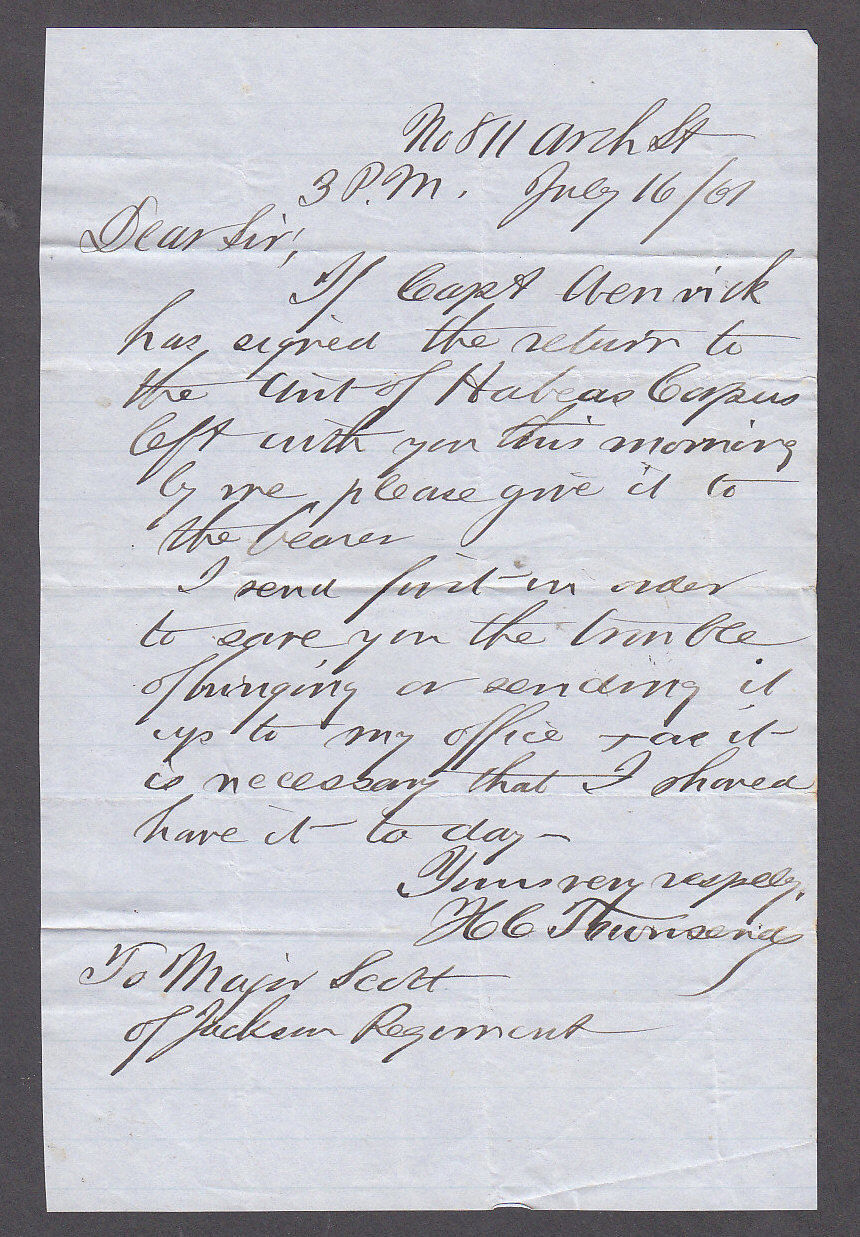 No 811 Arch St
3 P.M. July 16/61
Dear Sir!
If Capt
has signed the return to
the Writ of Habeas Corpus
left with you this morning
by me please give it to
the bearer
I send for it in order
to save you the trouble
of bringing or sending it
up to my office + as it
is necessary that I should
have it to day—
Yours very respcly.
H C Townsend
To Major Scott
of Jackson Regiment